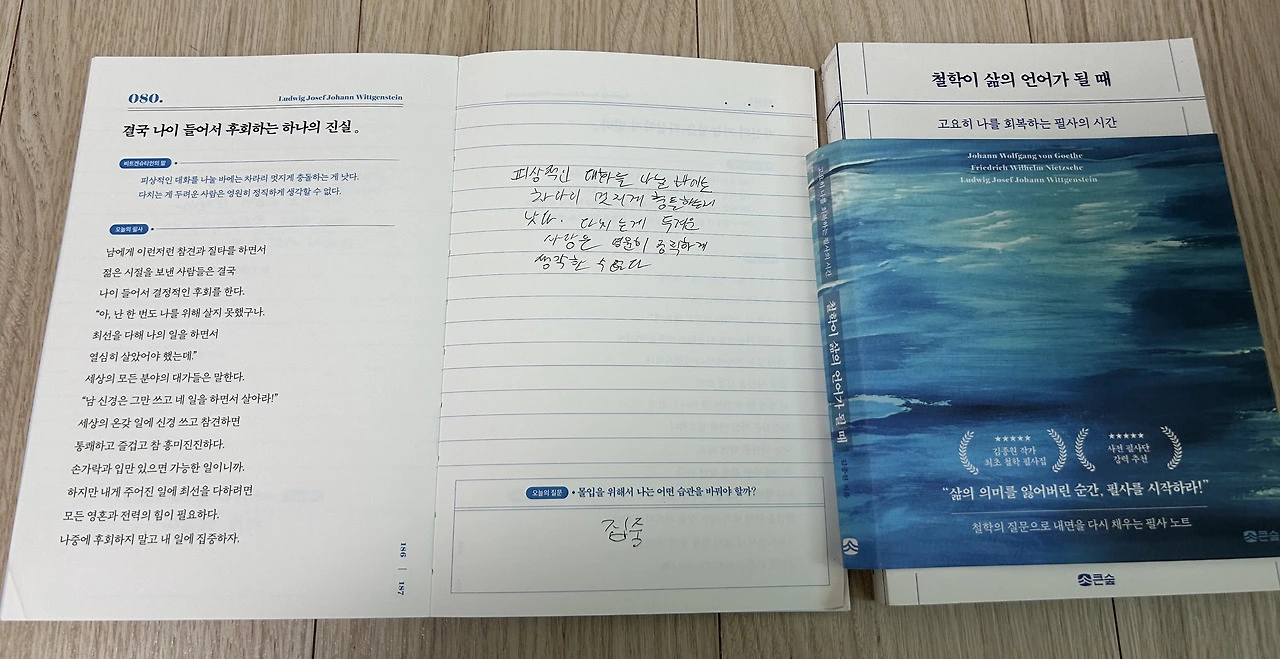 080.
Ludwig Josef Johann Wittgenstein
결국 나이 들어서 후회하는 하나의 진실.
비트겐슈타인의 말
피상적인 대화를 나눌 바에는 차라리 멋지게 충돌하는 게 낫다.
다치는 게 두려운 사람은 영원히 정직하게 생각할 수 없다.
오늘의 필사
남에게 이런저런 참견과 질타를 하면서
젊은 시절을 보낸 사람들은 결국
나이 들어서 결정적인 후회를 한다.
“아, 난 한 번도 나를 위해 살지 못했구나.
최선을 다해 나의 일을 하면서
열심히 살았어야 했는데.”
세상의 모든 분야의 대가들은 말한다.
“남 신경은 그만 쓰고 네 일을 하면서 살아라!”
세상의 온갖 일에 신경 쓰고 참견하면
통쾌하고 즐겁고 참 흥미진진하다.
손가락과 입만 있으면 가능한 일이니까.
하지만 내게 주어진 일에 최선을 다하려면
모든 영혼과 전력의 힘이 필요하다.
나중에 후회하지 말고 내 일에 집중하자.
186 | 187
피상적인 대화를 나눌 바에는
차라리 멋지게 충돌하는게
낫다. 다치는게 두려운
사람은 영원히 정직하게
생각할 수 없다
오늘의 질문 • 몰입을 위해서 나는 어떤 습관을 바꿔야 할까?
집중
철학이 삶의 언어가 될 때
고요히 나를 회복하는 필사의 시간
Johann Wolfgang von Goethe
Friedrich Wilhelm Nietzsche
Ludwig Josef Johann Wittgenstein
고요히 나를 회복하는 필사의 시간
철학이 삶의 언어가 될 때
김종원 지음
★★★★★
김종원 작가
최초 철학 필사집
★★★★★
사전 필사단
강력 추천
“삶의 의미를 잃어버린 순간, 필사를 시작하라!”
철학의 질문으로 내면을 다시 채우는 필사 노트
큰숲
큰숲